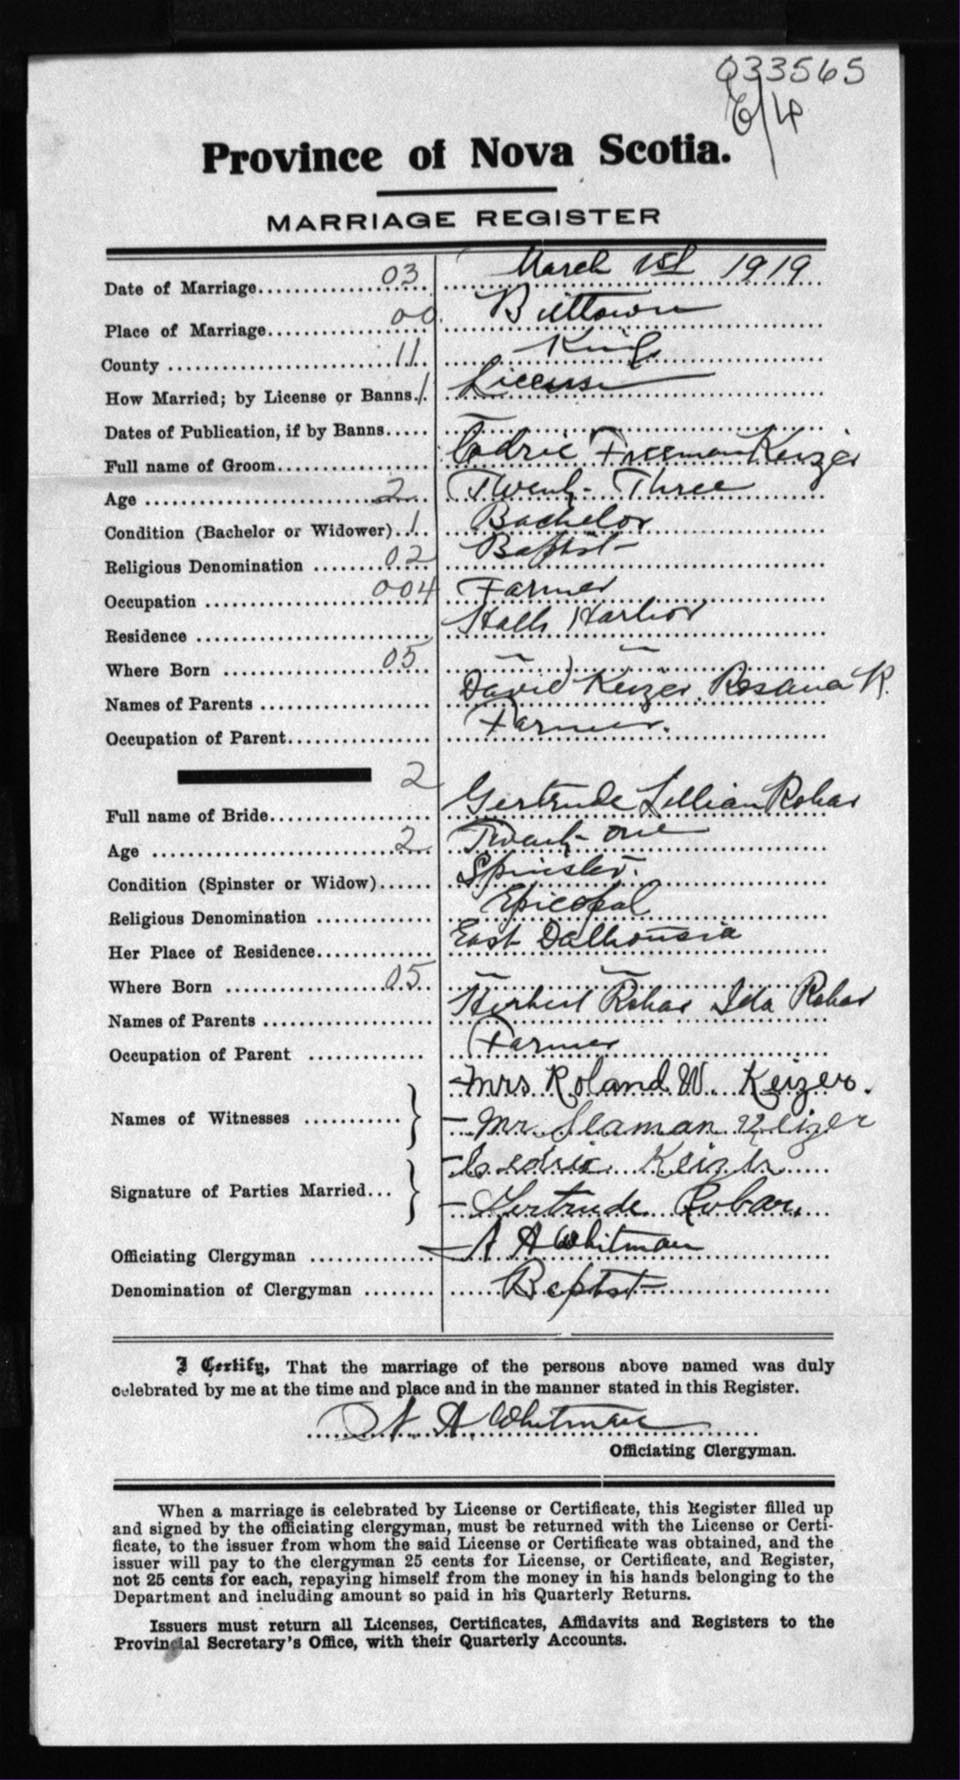 033565
Province of Nova Scotia.
MARRIAGE REGISTER
Date of Marriage 03 March 1st 1919
Place of Marriage 00 Billtown
County 11 Kings
How Married; by License or Banns. 1 License
Dates of Publication, if by Banns
Full name of Groom Cedric Freeman Keizer
Age 2 Twenty-Three
Condition (Bachelor or Widower) 1 Bachelor
Religious Denomination 02 Baptist
Occupation 004 Farmer
Residence Halls Harbor
Where Born 05 " "
Names of Parents David Keizer Rosana K.
Occupation of Parent Farmer.
2
Full name of Bride Gertrude Lillian Robar
Age 2 Twenty-one
Condition (Spinster or Widow) Spinster.
Religious Denomination Epicopal
Her Place of Residence East Dalhousia
Where Born 05 " "
Names of Parents Herbert Robar Ida Robar
Occupation of Parent Farmer
Names of Witnesses Mrs Roland W. Keizer.
Mr. Seaman Keizer
Signature of Parties Married Cedric Keizer
Gertrude Robar.
Officiating Clergyman A A Whitman
Denomination of Clergyman Baptist
I Certify, That the marriage of the persons above named was duly
celebrated by me at the time and place and in the manner stated in this Register.
A. A. Whitman
Officiating Clergyman.
When a marriage is celebrated by License or Certificate, this Register filled up
and signed by the officiating clergyman, must be returned with the License or Certi-
ficate, to the issuer from whom the said License or Certificate was obtained, and the
issuer will pay to the clergyman 25 cents for License, or Certificate, and Register,
not 25 cents for each, repaying himself from the money in his hands belonging to the
Department and including amount so paid in his Quarterly Returns.
Issuers must return all Licenses, Certificates, Affidavits and Registers to the
Provincial Secretary's Office, with their Quarterly Accounts.